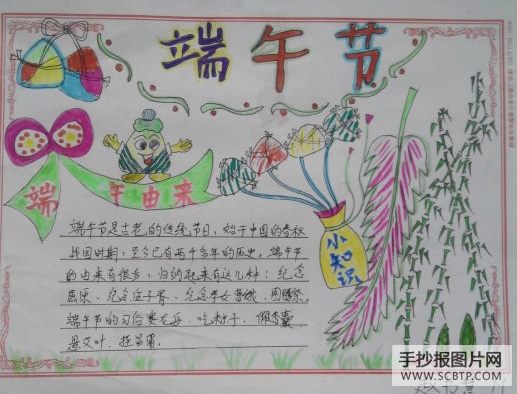 端午节
端午由来
端午节是古老的传统节日，始于中国的春秋
战国时期，至今已有两千多年的历史。端午节
的由来有很多，归纳起来有这几种：纪念
屈原、纪念伍子胥、纪念孝女曹娥、图腾祭。
端午节的习俗赛龙舟、吃粽子、佩香囊
悬艾叶、挂菖蒲。
小知识
手抄报图片网
WWW.SCBTP.COM